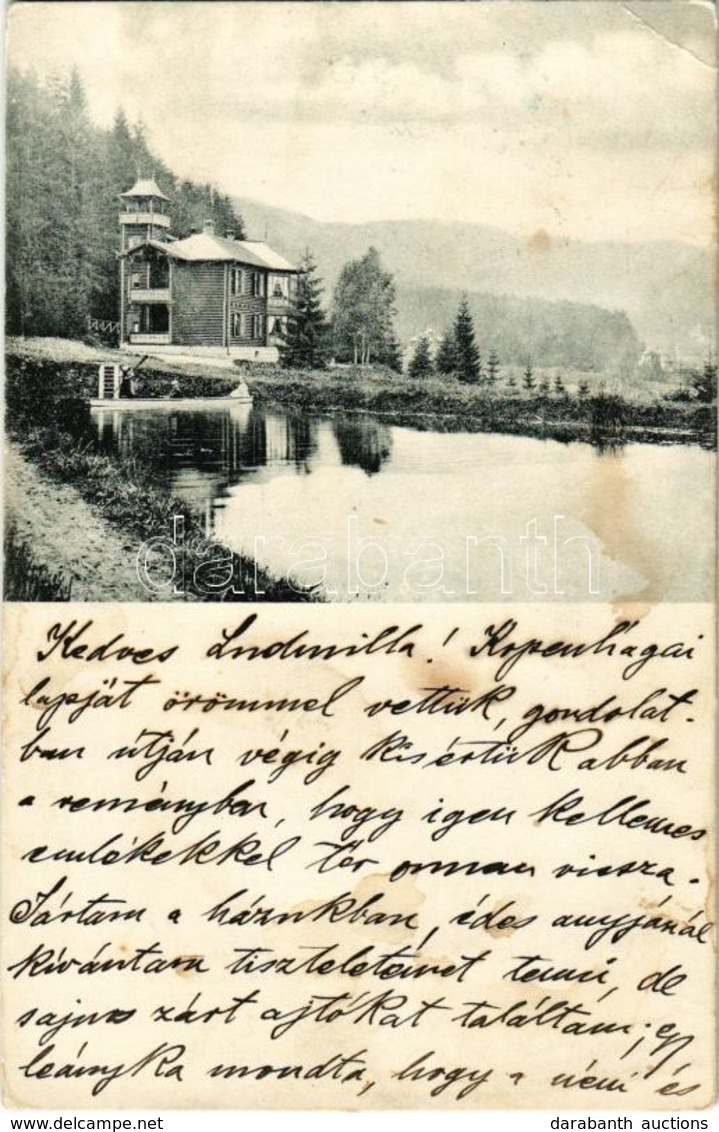 darabanth
Kedves Ludmilla! Kopenhágai
lapját örömmel vettük, gondolat-
ban útján végig kisértük abban
a reményben, hogy igen kellemes
emlékekkel tér onnan vissza.
Jártam a házukban, édes anyjánál
kívántam tiszteletemet tenni, de
sajnos zárt ajtókat találtam; egy
leányka mondta, hogy a néni és
darabanth auctions